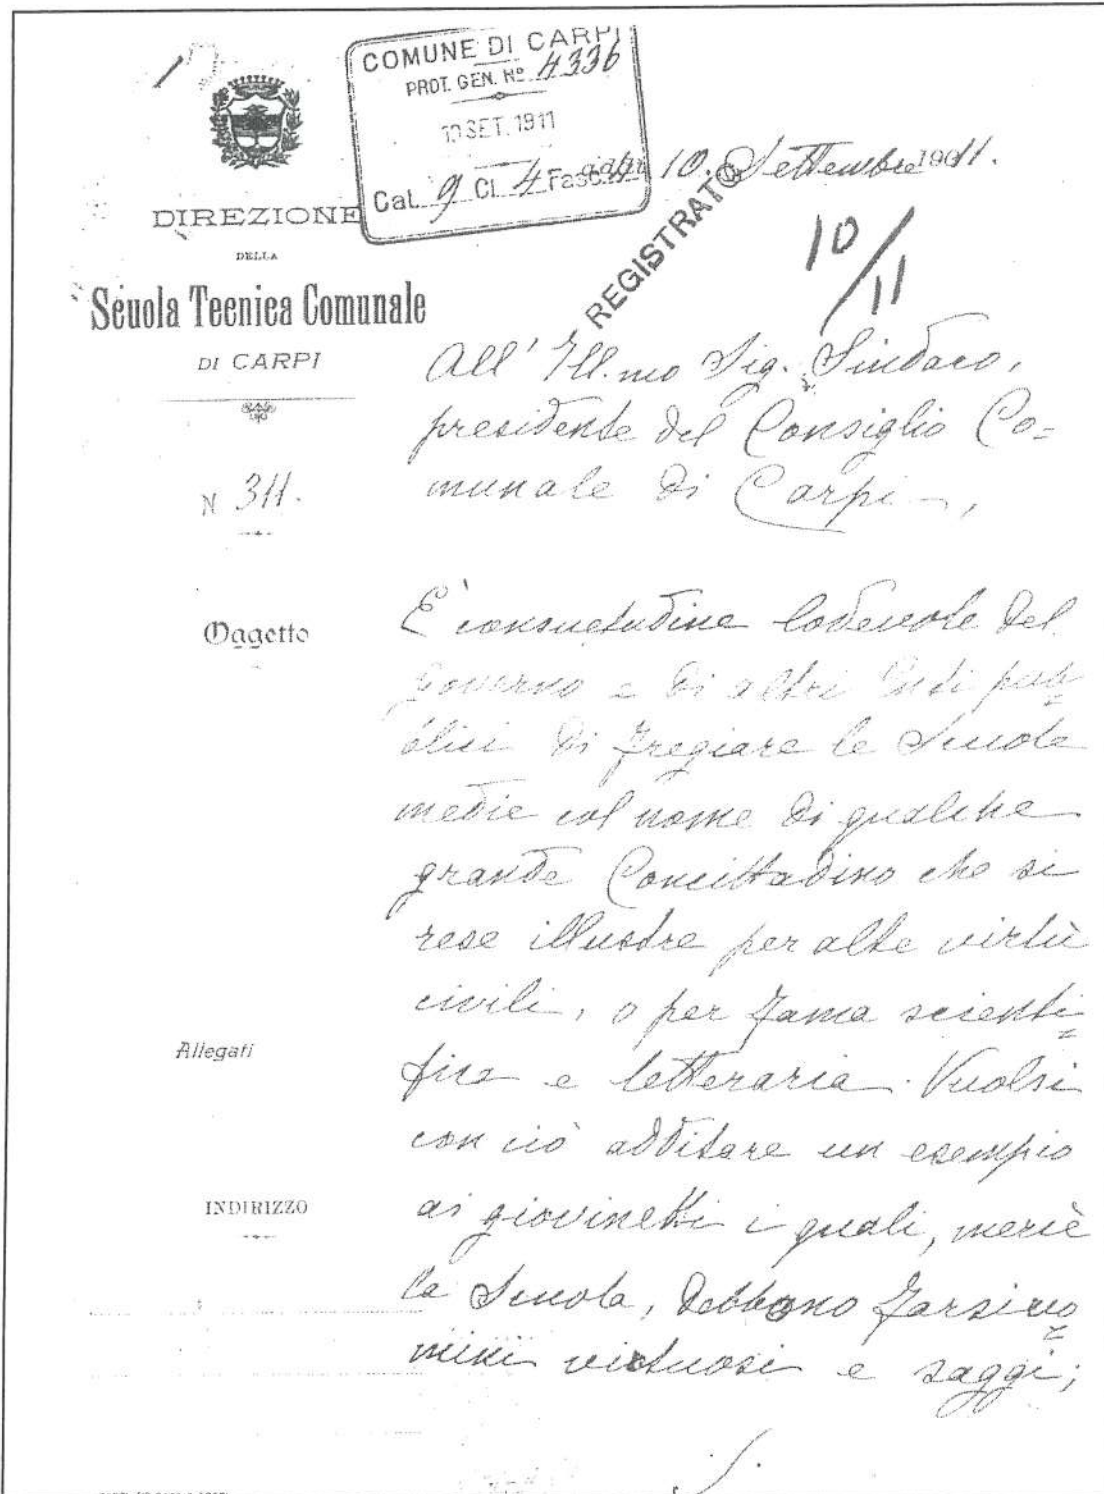 COMUNE DI CARPI
PROT. GEN. Nº 4336
SET. 1911
Cat. 9 Cl. 4 Fasc.
10. Settembre 1911.
REGISTRATO
10/11
DIREZIONE
DELLA
Scuola Tecnica Comunale
DI CARPI
N 311.
Oggetto
Allegati
INDIRIZZO
All' Ill.mo Sig. Sindaco,
presidente del Consiglio Co=
munale di Carpi,
E' consuetudine lodevole del
Governo e di altri Enti pub=
blici di fregiare le Scuole
medie col nome di qualche
grande Concittadino che si
rese illustre per alte virtù
civili, o per fama scienti=
fica e letteraria. Vuolsi
con ciò additare un esempio
ai giovinetti i quali, mercè
la Scuola, debbono farsi uo=
mini virtuosi e saggi;